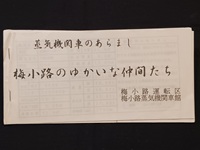 蒸気機関車のあらまし
梅小路のゆかいな仲間たち
梅小路運転区
梅小路蒸気機関車館